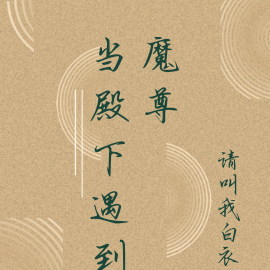 当殿下遇到
魔尊
请叫我白衣